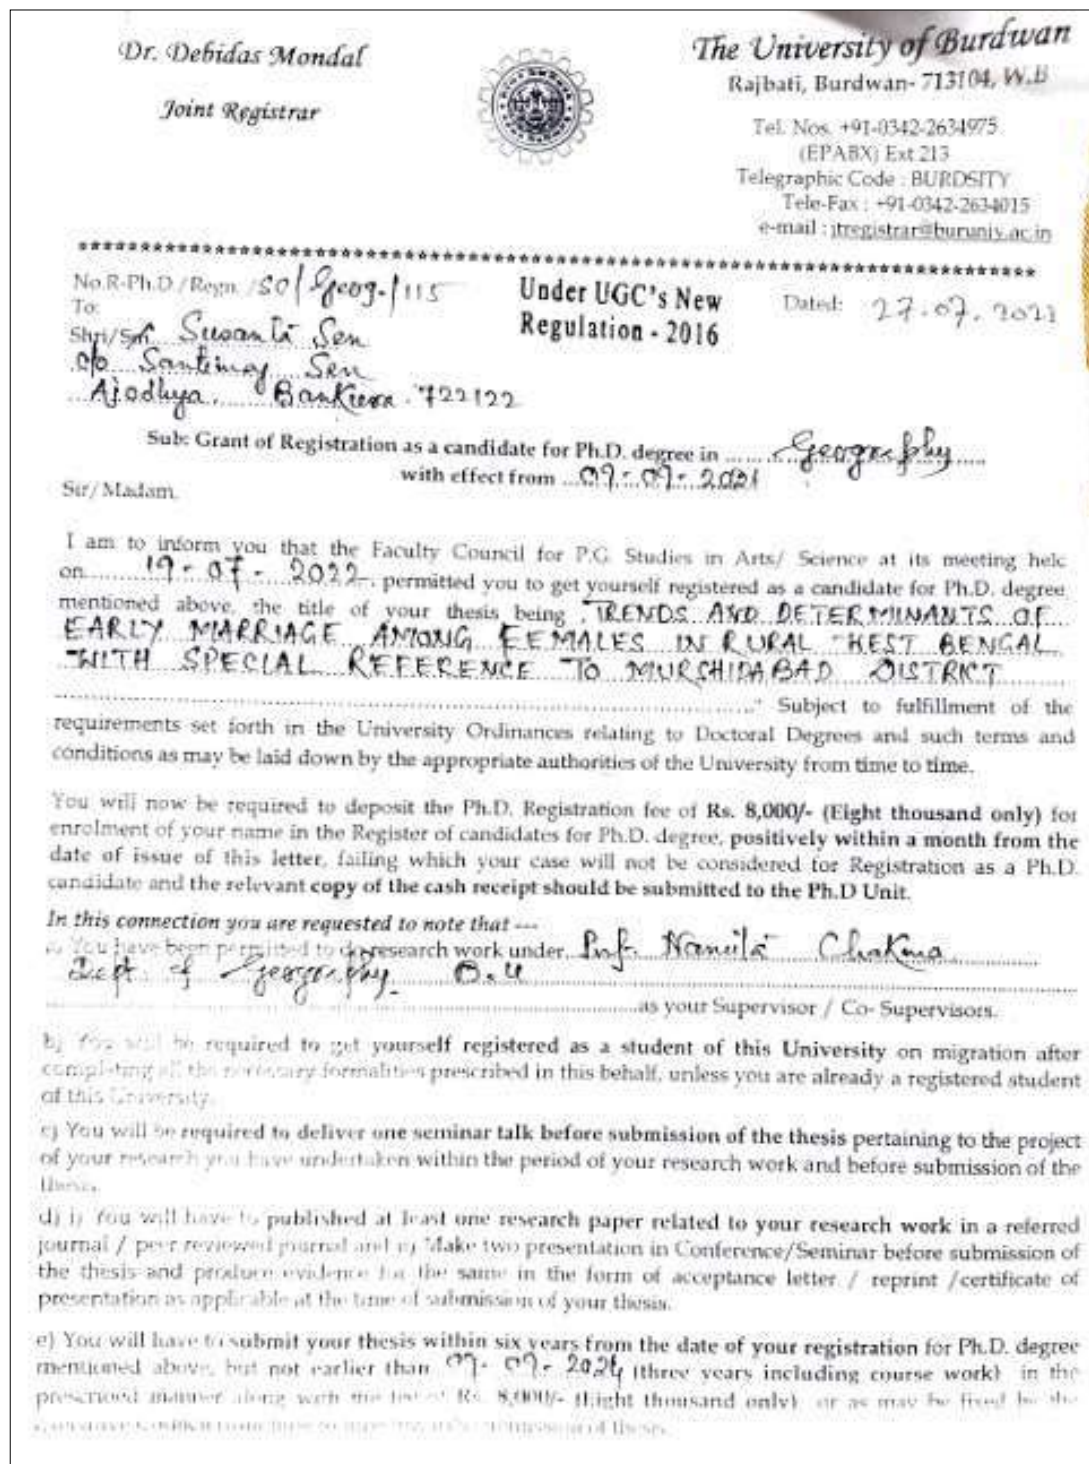 Dr. Debidas Mondal
Joint Registrar
The University of Burdwan
Rajbati, Burdwan- 713104, W.B
Tel. Nos. +91-0342-2634975
(EPABX) Ext 213
Telegraphic Code : BURDSITY
Tele-Fax : +91-0342-2634015
e-mail : jtregistrar@buruniv.ac.in
No.R-Ph.D/Regn./SO/Geog./115
Under UGC's New
Regulation - 2016
Dated: 27.07.2022
To:
Shri/Smt Susanta Sen
c/o Santimay Sen
Ajodhya, Bankura. 722122
Sub: Grant of Registration as a candidate for Ph.D. degree in ...... Geography
with effect from 09-09-2021
Sir/Madam,
I am to inform you that the Faculty Council for P.G. Studies in Arts/ Science at its meeting held
on 19-07-2022, permitted you to get yourself registered as a candidate for Ph.D. degree
mentioned above, the title of your thesis being TRENDS AND DETERMINANTS OF
EARLY MARRIAGE AMONG FEMALES IN RURAL WEST BENGAL
WITH SPECIAL REFERENCE TO MURSHIDABAD DISTRICT
" Subject to fulfillment of the
requirements set forth in the University Ordinances relating to Doctoral Degrees and such terms and
conditions as may be laid down by the appropriate authorities of the University from time to time.
You will now be required to deposit the Ph.D. Registration fee of Rs. 8,000/- (Eight thousand only) for
enrolment of your name in the Register of candidates for Ph.D. degree, positively within a month from the
date of issue of this letter, failing which your case will not be considered for Registration as a Ph.D.
candidate and the relevant copy of the cash receipt should be submitted to the Ph.D Unit.
In this connection you are requested to note that ---
a) You have been permitted to do research work under Prof. Namita Chakma
Dept. of Geography B.U
as your Supervisor / Co- Supervisors.
b) You will be required to get yourself registered as a student of this University on migration after
completing all the necessary formalities prescribed in this behalf, unless you are already a registered student
of this University.
c) You will be required to deliver one seminar talk before submission of the thesis pertaining to the project
of your research you have undertaken within the period of your research work and before submission of the
thesis.
d) i) You will have to published at least one research paper related to your research work in a referred
journal / peer reviewed journal and ii) Make two presentation in Conference/Seminar before submission of
the thesis and produce evidence for the same in the form of acceptance letter / reprint /certificate of
presentation as applicable at the time of submission of your thesis.
e) You will have to submit your thesis within six years from the date of your registration for Ph.D. degree
mentioned above, but not earlier than 09-09-2024 (three years including course work) in the
prescribed manner along with the fee of Rs. 8,000/- (Eight thousand only) or as may be fixed by the
submission of thesis.